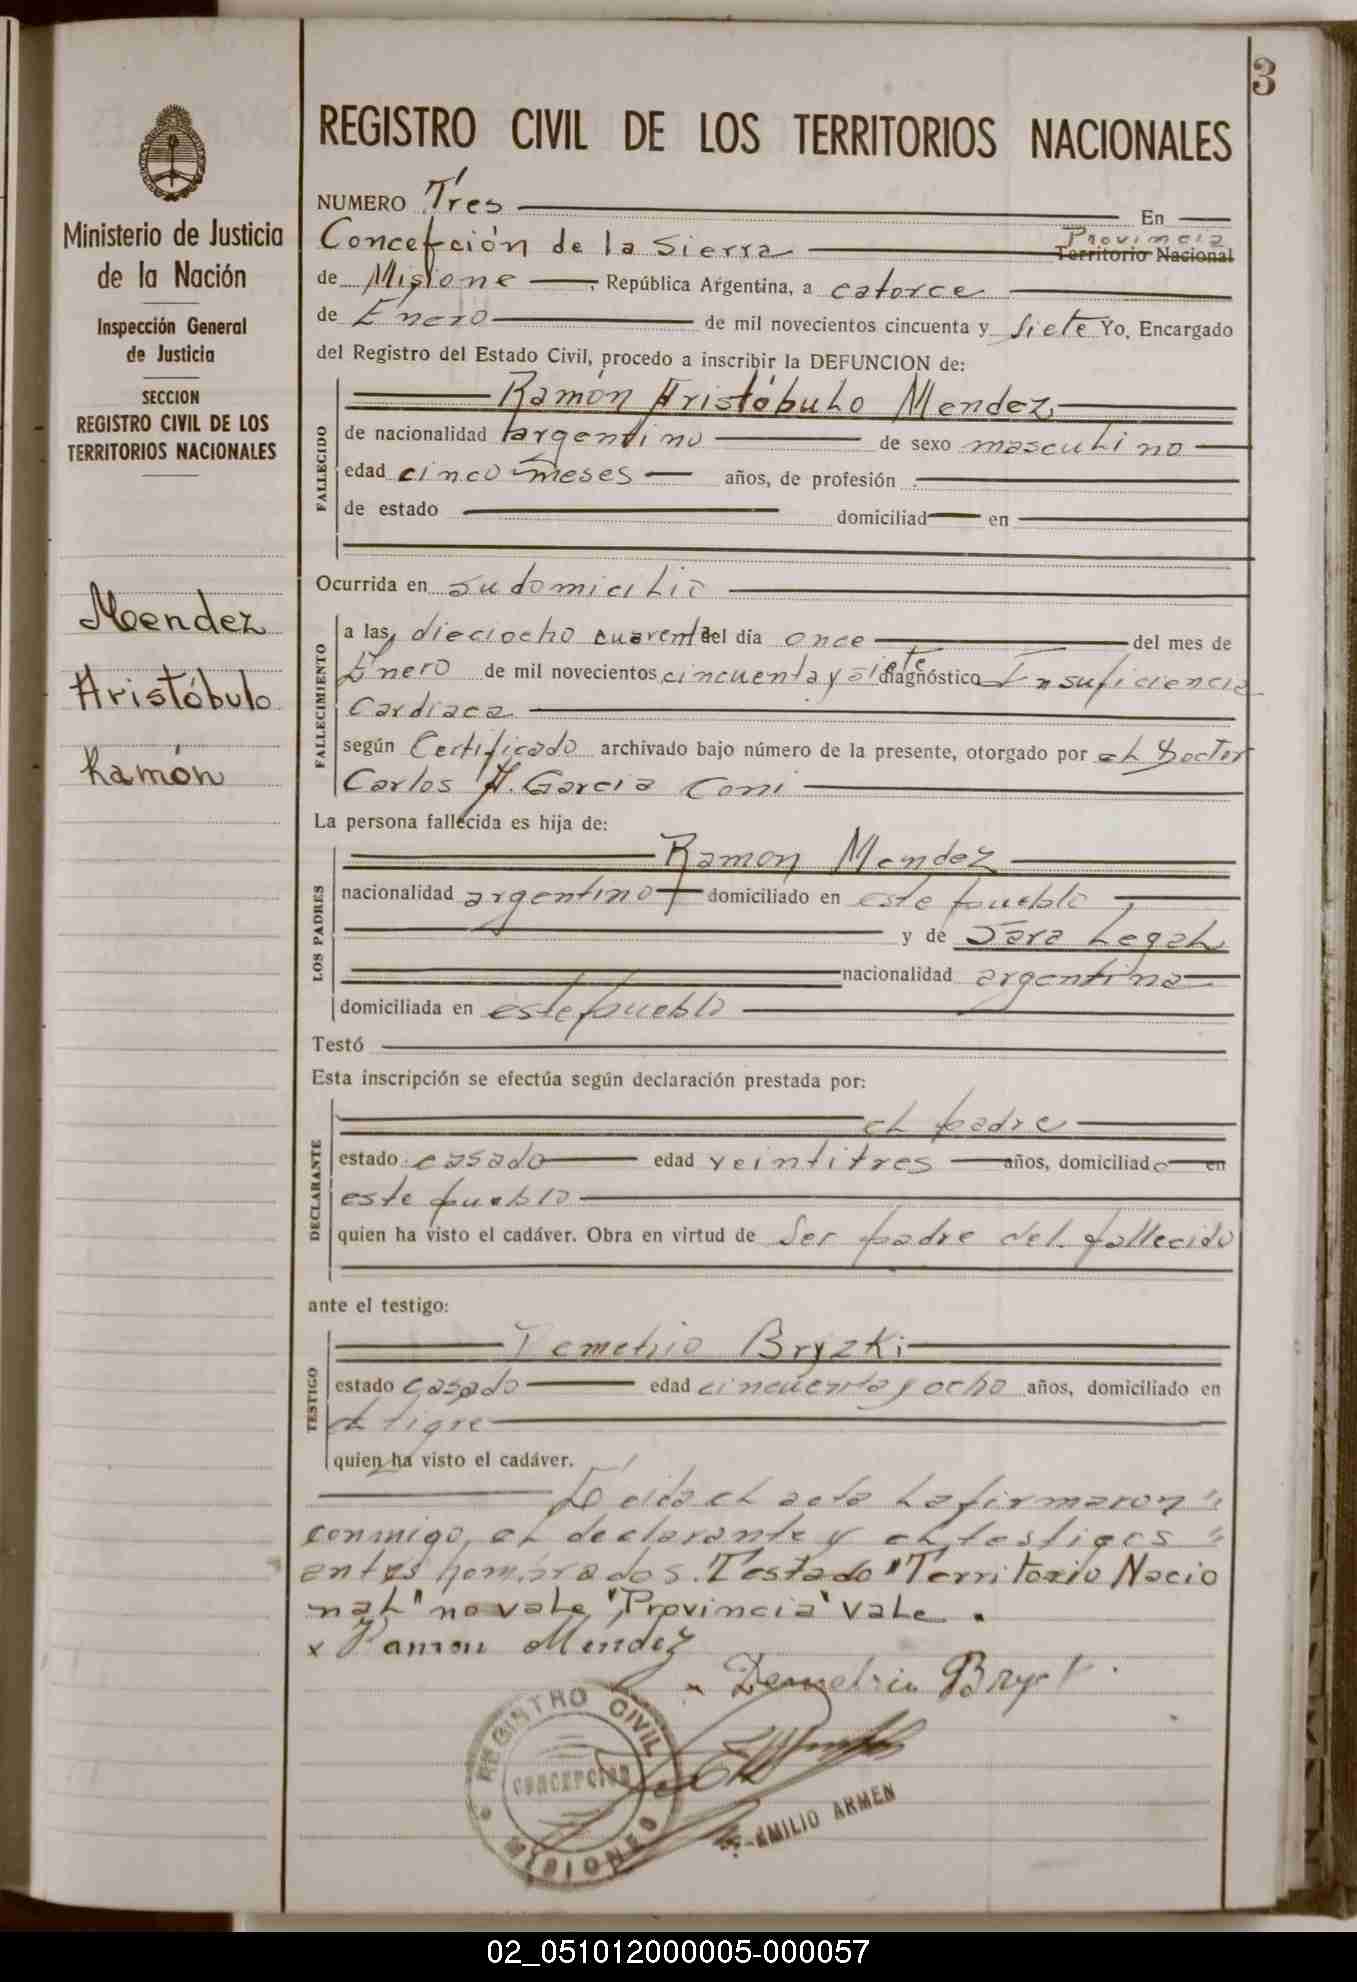 3
REGISTRO CIVIL DE LOS TERRITORIOS NACIONALES
Ministerio de Justicia
de la Nación
Inspección General
de Justicia
SECCION
REGISTRO CIVIL DE LOS
TERRITORIOS NACIONALES
Mendez
Aristóbulo
Ramón
NUMERO Tres En
Provincia
Concepción de la Sierra Territorio Nacional
de Misione , República Argentina, a catorce
de Enero de mil novecientos cincuenta y siete Yo, Encargado
del Registro del Estado Civil, procedo a inscribir la DEFUNCION de:
FALLECIDO
Ramón Aristóbulo Mendez
de nacionalidad argentino de sexo masculino
edad cinco meses años, de profesión
de estado domiciliad en
Ocurrida en su domicilio
FALLECIMIENTO
a las dieciocho cuarenta del día once del mes de
Enero de mil novecientos cincuenta y siete diagnóstico Insuficiencia
Cardiaca
según Certificado archivado bajo número de la presente, otorgado por el Doctor
Carlos A. Garcia Coni
La persona fallecida es hija de:
LOS PADRES
Ramon Mendez
nacionalidad argentino domiciliado en este pueblo
y de Sara Legal
nacionalidad argentina
domiciliada en este pueblo
Testó
Esta inscripción se efectúa según declaración prestada por:
DECLARANTE
el padre
estado casado edad veintitres años, domiciliado en
este pueblo
quien ha visto el cadáver. Obra en virtud de ser padre del fallecido
ante el testigo:
TESTIGO
Demetrio Bryzki
estado casado edad cincuenta y ocho años, domiciliado en
el tigre
quien ha visto el cadáver.
Leida el acta la firmaron
conmigo, el declarante y el testigos
antes nombrados. Testado "Territorio Nacio
nal" no vale, "Provincia" vale.
x Ramon Mendez
Demetrio
REGISTRO CIVIL
CONCEPCION
MISIONES
EMILIO ARMEN
02_051012000005-000057